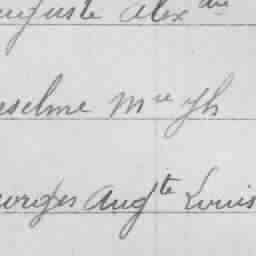 uguste Alex dre
nselme Mie Jh
eorges Augte Louis